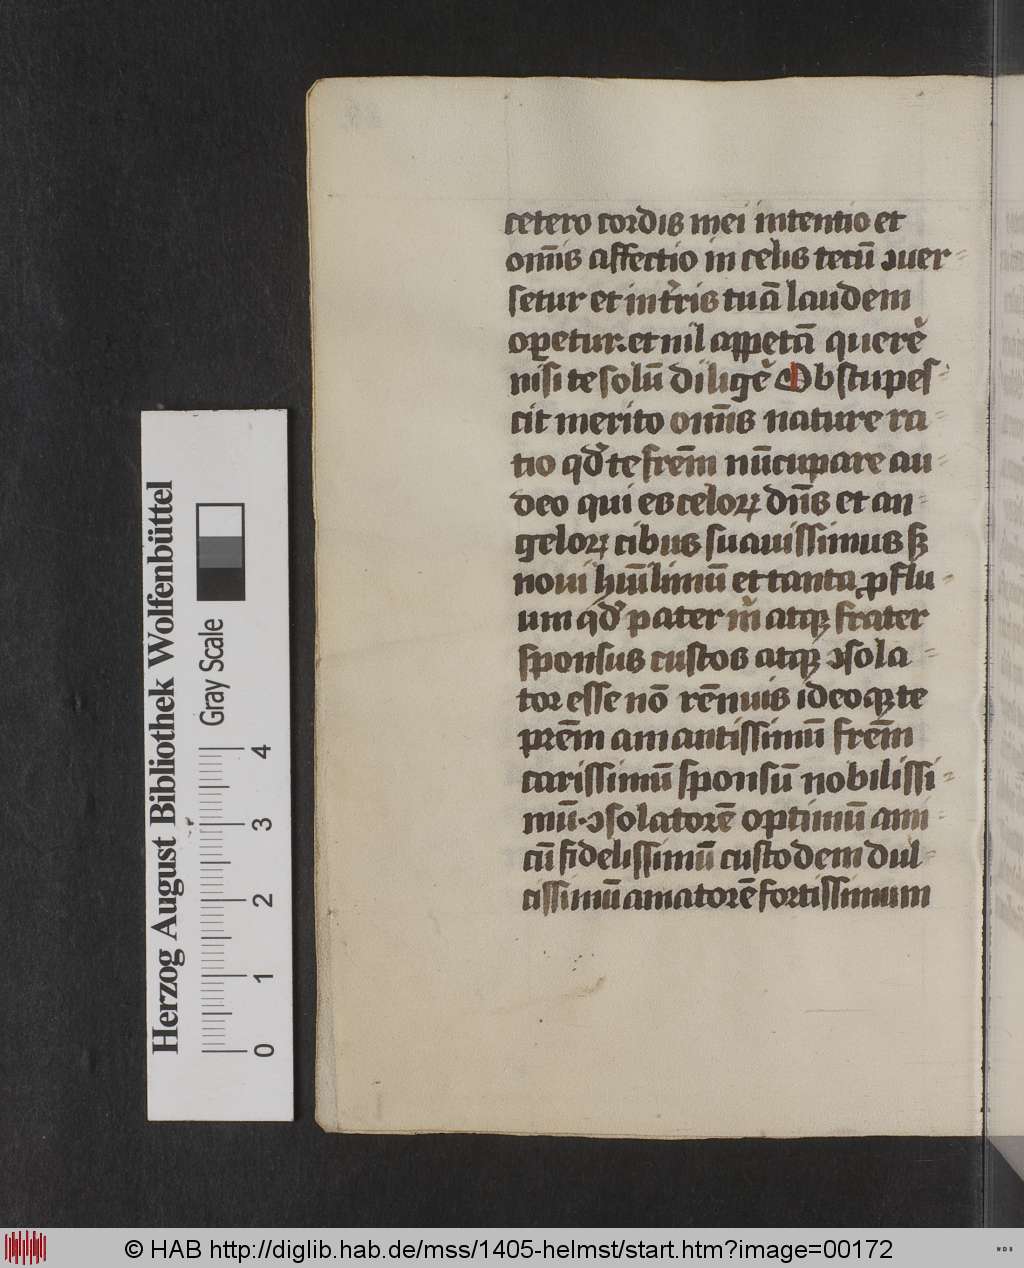 cetero cordis mei intentio et
om̄is affectio in celis tecū ɔuer-
setur et int̾ris tuā laudem
oꝑetur. et nil appetā querē
nisi te solū diligē Obstupes-
cit merito om̄is nature ra-
tio qd̾ te frēm nūcupare au-
deo qui es celoꝝ dn̄s et an-
geloꝝ cibus suauissimus sꝫ
noui hūilimū et tanta ꝓflu-
um qd̾ pater m̾ atqꝫ frater
sponsus custos atqꝫ ɔsola-
tor esse nō rēnuis ideoqꝫ te
prēm amantissimū frēm
carissimū sponsū nobilissi-
mū. ɔsolatorē optimū ami-
cū fidelissimū custodem dul-
cissimū amatorē fortissimum
Herzog August Bibliothek Wolfenbüttel
Gray Scale
0 1 2 3 4
© HAB http://diglib.hab.de/mss/1405-helmst/start.htm?image=00172